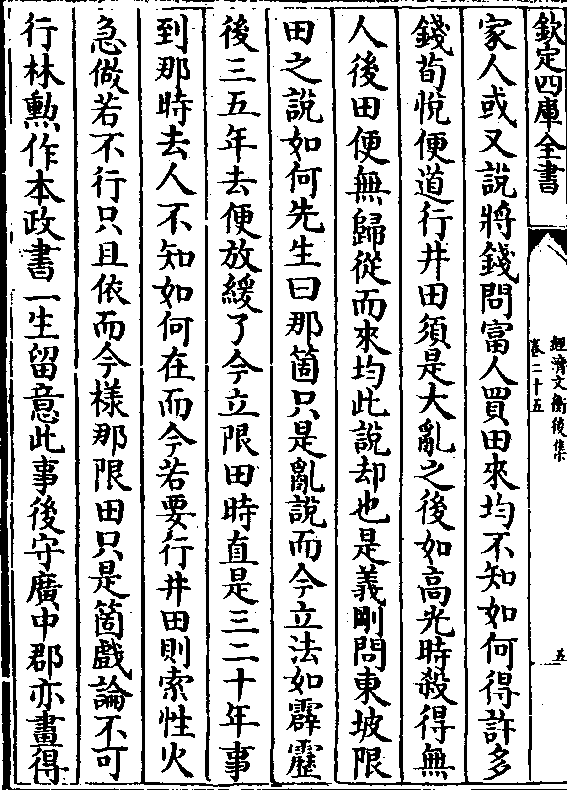 欽定四庫全書
經濟文衡後集
卷二十五
五
家人或又說將錢問富人買田來均不知如何得許多
錢荀悅便道行井田須是大亂之後如高光時殺得無
人後田便無歸從而來均此說却也是義剛問東坡限
田之說如何先生曰那箇只是亂說而今立法如霹靂
後三五年去便放緩了今立限田時直是三二十年事
到那時去人不知如何在而今若要行井田則索性火
急做若不行只且依而今樣那限田只是箇戲論不可
行林勲作本政書一生留意此事後守廣中郡亦畫得